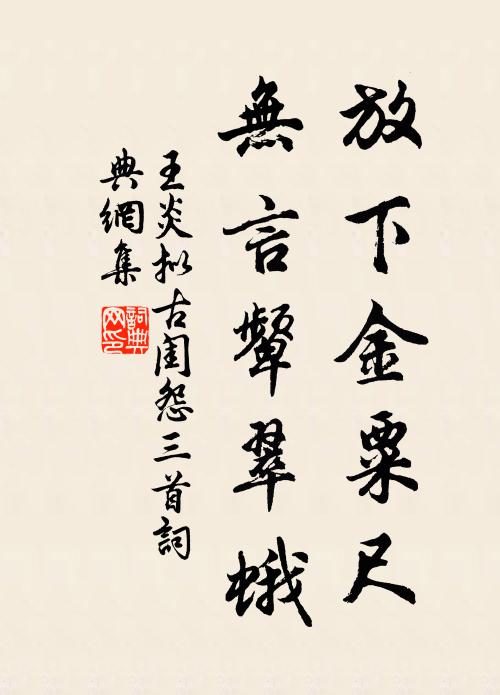 放下金粟尺
無言顰翠蛾
王炎拟古闺怨三首詞
典網集
詞典网印